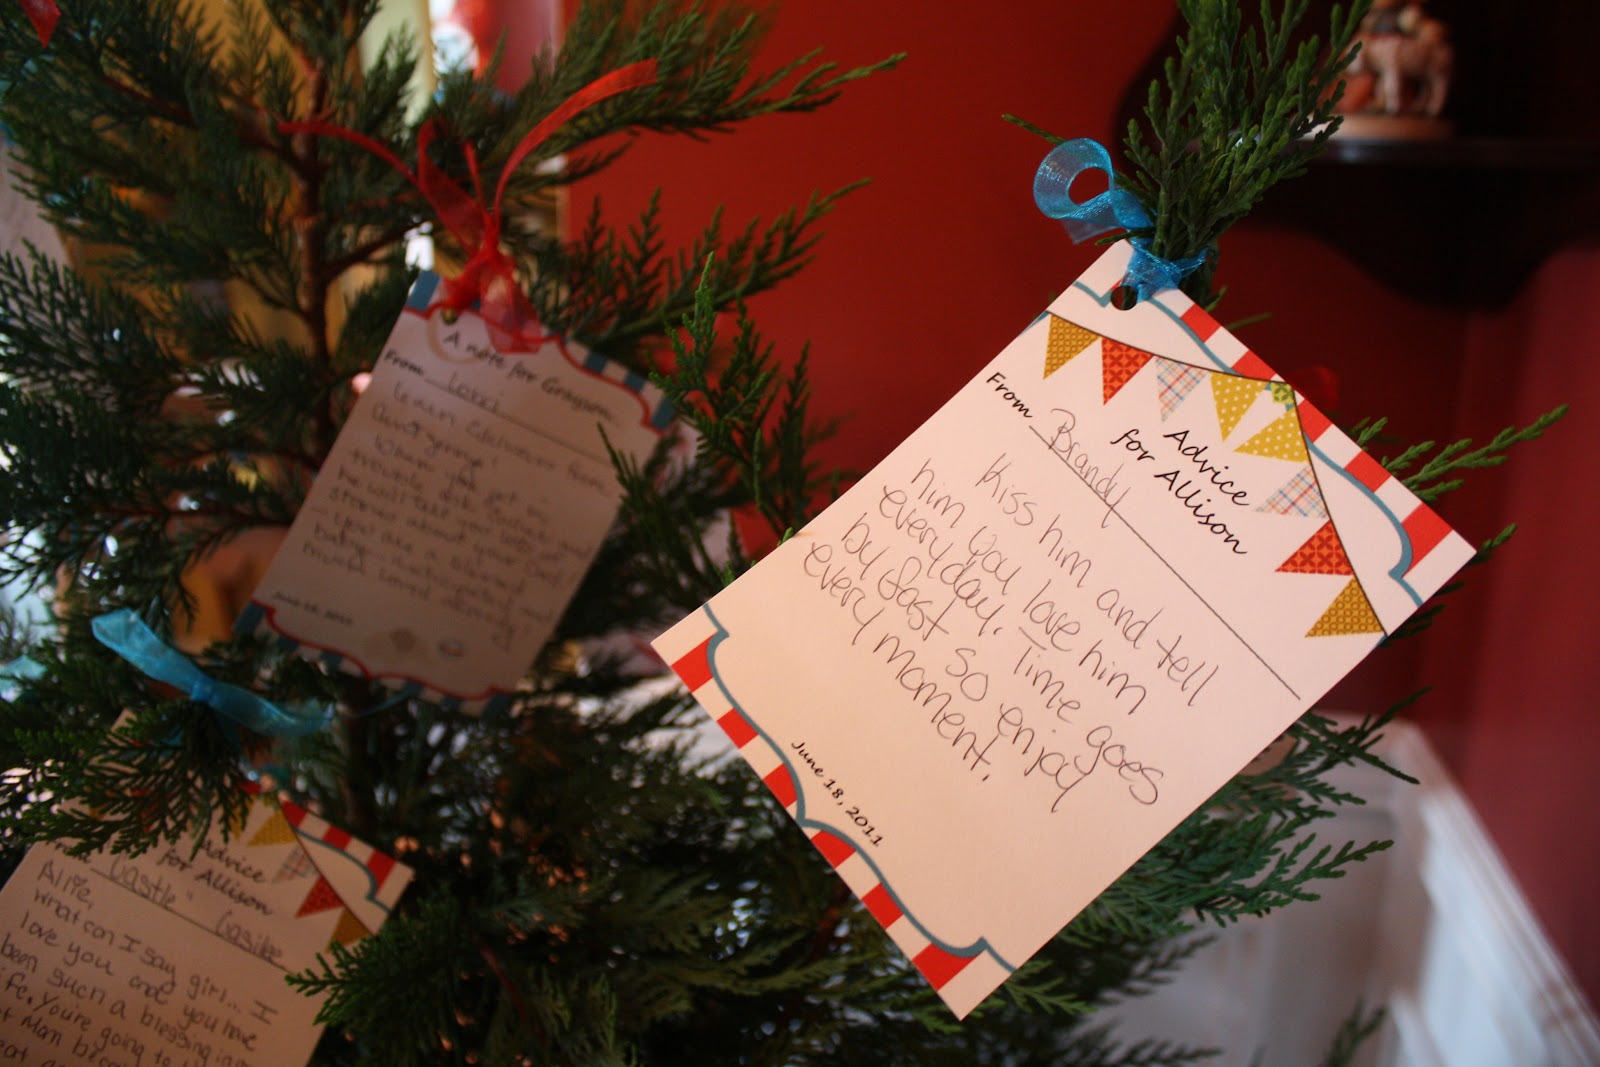 A note for Grayson
From Lorri
Learn Edelweiss from
When you get in
trouble, ask
he will tell you
stories about your Dad!
You are a blessed
baby
much loved already!
June 18, 2011
Advice
for Allison
From Brandy
Kiss him and tell
him you love him
everyday. Time goes
by fast so enjoy
every moment.
June 18, 2011
Advice
for Allison
Castle
Allie,
what can I say girl... I
love you and you have
been such a blessing in
life. You're going to